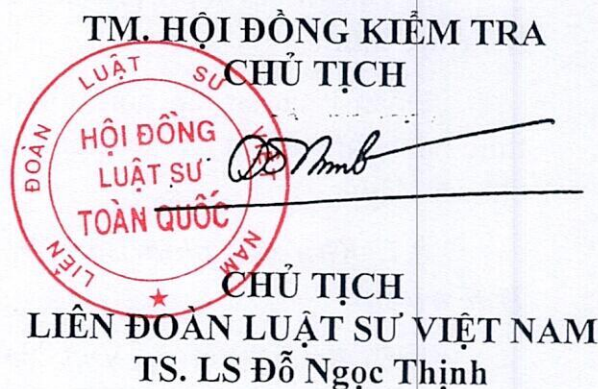 TM. HỘI ĐỒNG KIỂM TRA
CHỦ TỊCH
LIÊN ĐOÀN LUẬT SƯ VIỆT NAM
HỘI ĐỒNG
LUẬT SƯ
TOÀN QUỐC
CHỦ TỊCH
LIÊN ĐOÀN LUẬT SƯ VIỆT NAM
TS. LS Đỗ Ngọc Thịnh